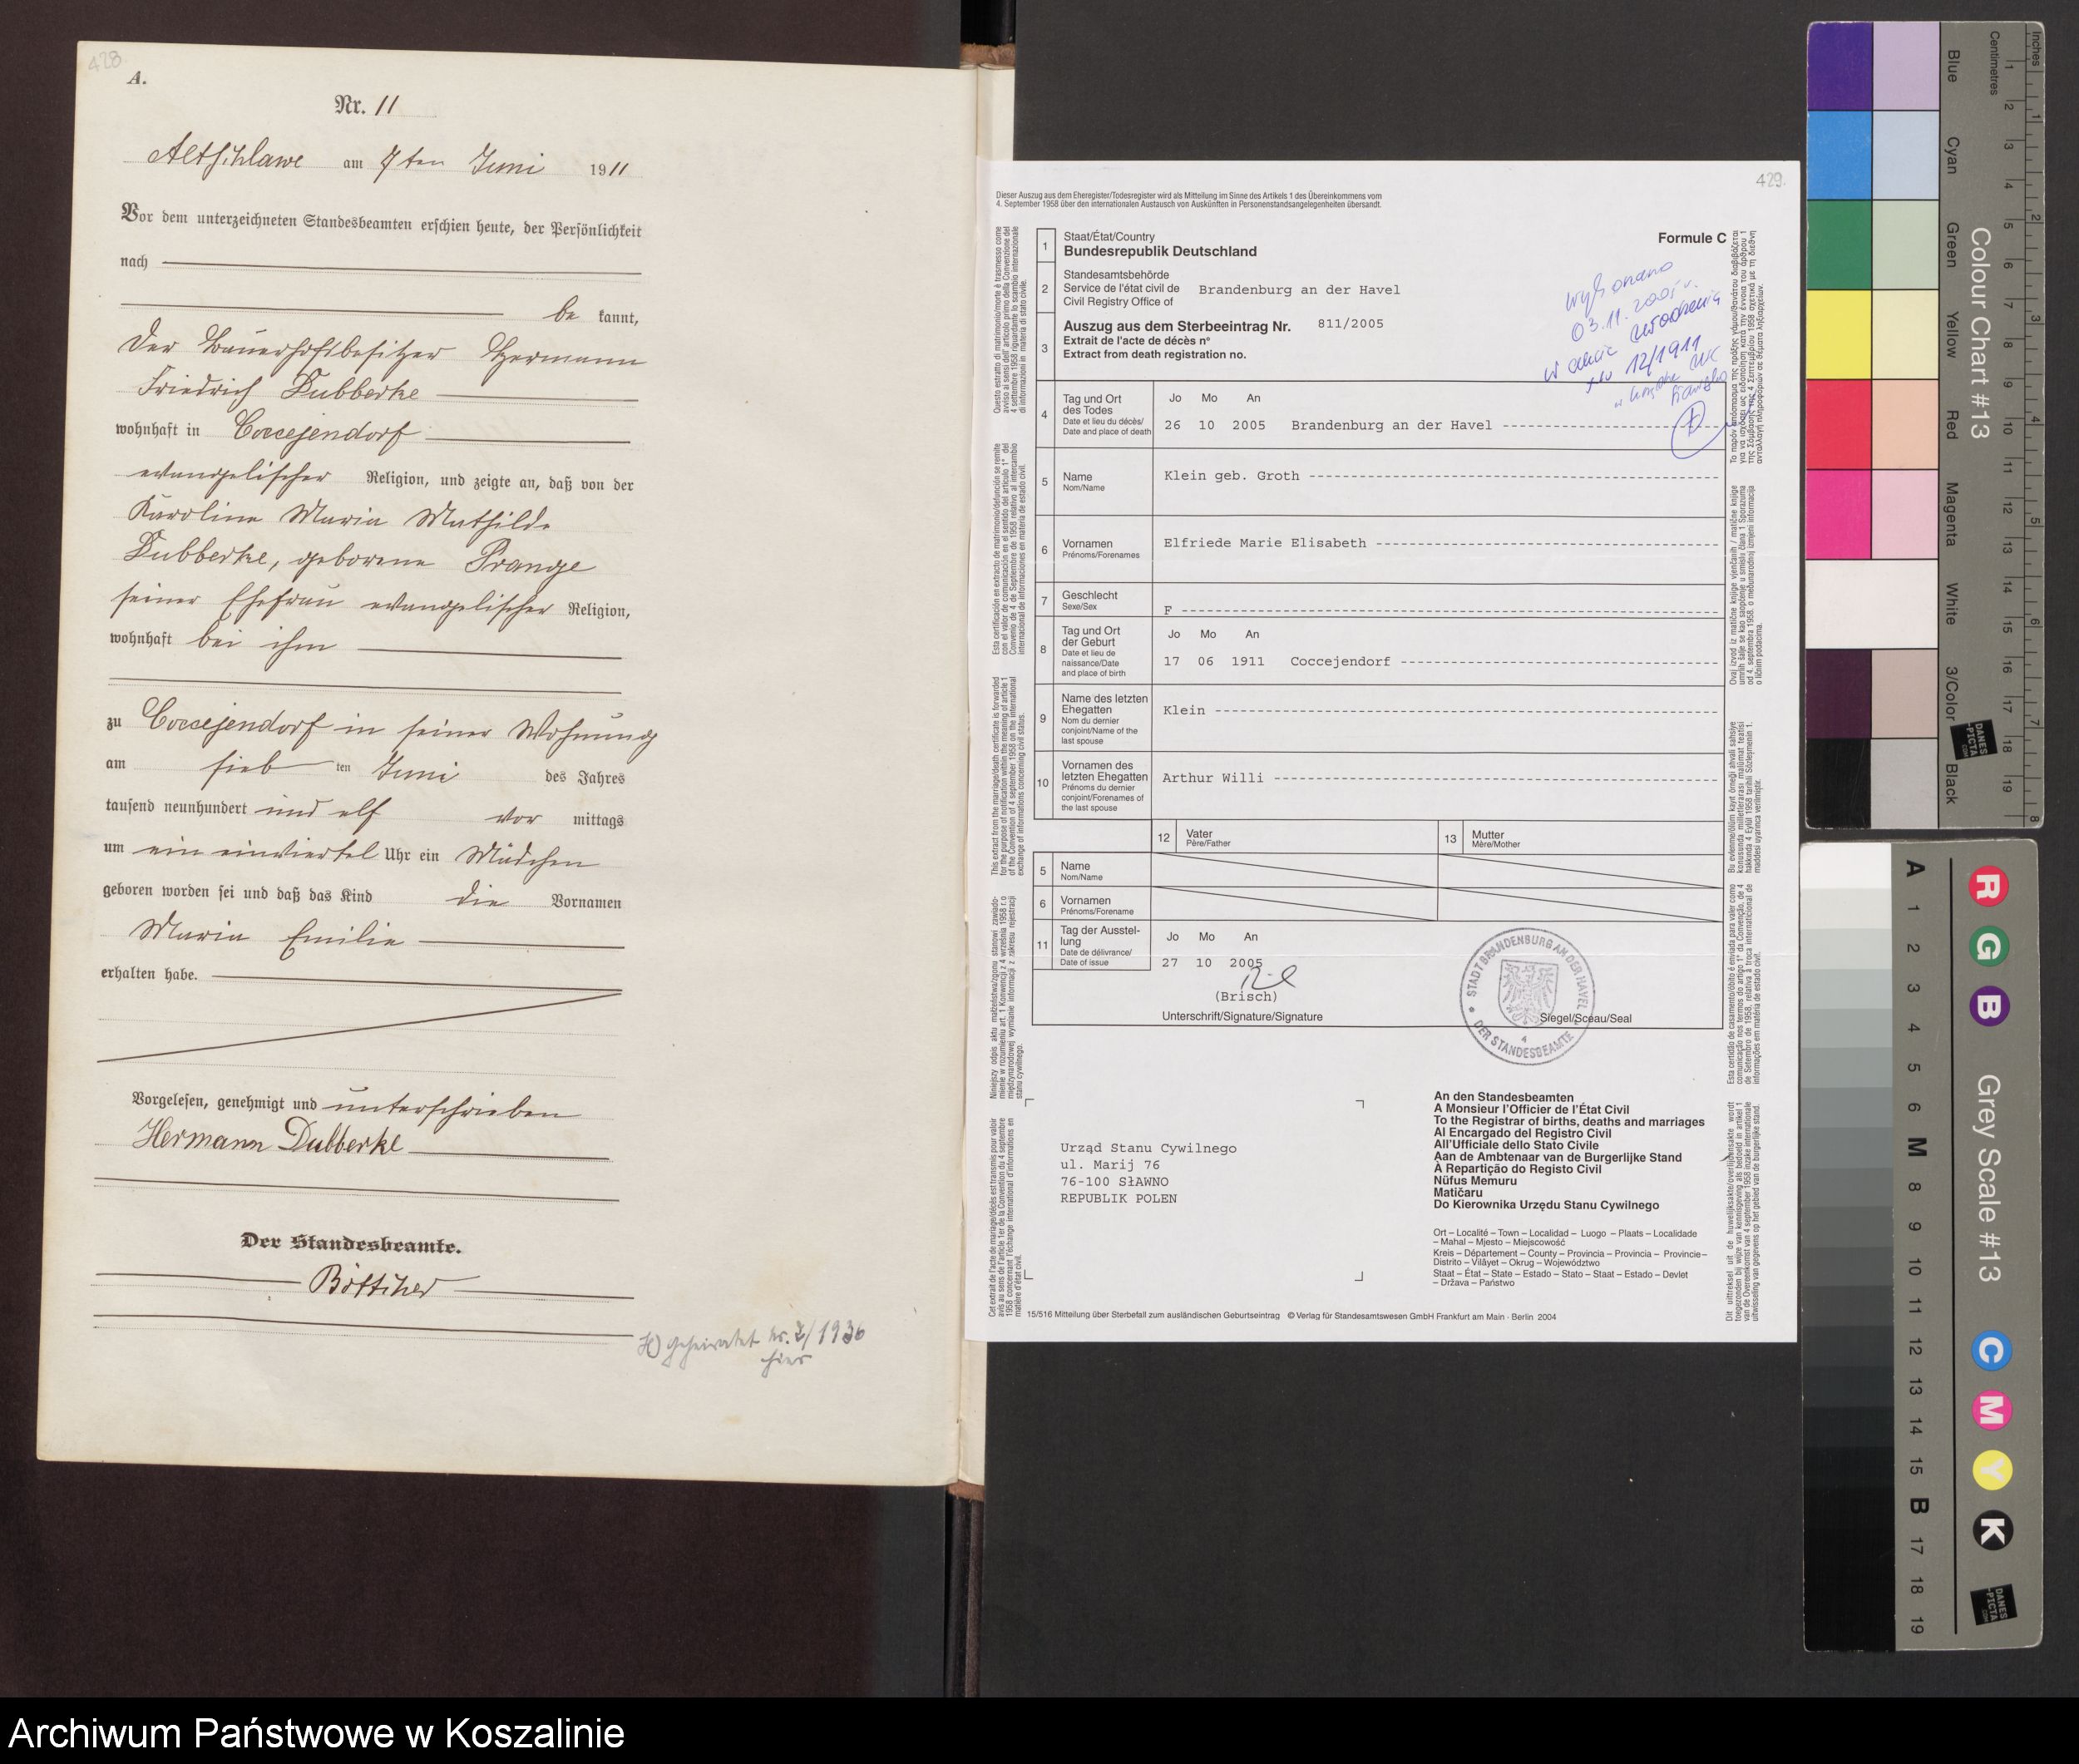 428
A.
Nr. 11
Altschlawe am 7ten Juni 1911
Vor dem unterzeichneten Standesbeamten erschien heute, der Persönlichkeit
nach
be kannt,
der Bauerhofsbesitzer Hermann
Friedrich Dubberke
wohnhaft in Coccejendorf
evangelischer Religion, und zeigte an, daß von der
Karoline Maria Mathilde
Dubberke, geborene Prange
seiner Ehefrau evangelischer Religion,
wohnhaft bei ihm
zu Coccejendorf in seiner Wohnung
am sieb ten Juni des Jahres
tausend neunhundert und elf vor mittags
um ein einviertel Uhr ein Mädchen
geboren worden sei und daß das Kind die Vornamen
Maria Emilie
erhalten habe.
Vorgelesen, genehmigt und unterschrieben
Hermann Dubberke
Der Standesbeamte.
Böttcher
geheiratet nr. 2/1936
hier
429.
Dieser Auszug aus dem Eheregister/Todesregister wird als Mitteilung im Sinne des Artikels 1 des Übereinkommens vom
4. September 1958 über den internationalen Austausch von Auskünften in Personenstandsangelegenheiten übersandt.
Formule C
wykonano
03.11.2005 r.
w akcie urodzenia
12/1911
1 Staat/État/Country
Bundesrepublik Deutschland
2 Standesamtsbehörde
Service de l'état civil de
Civil Registry Office of
Brandenburg an der Havel
3 Auszug aus dem Sterbeeintrag Nr. 811/2005
Extrait de l'acte de décès n°
Extract from death registration no.
4 Tag und Ort
des Todes
Date et lieu du décès/
Date and place of death
Jo Mo An
26 10 2005 Brandenburg an der Havel
5 Name
Nom/Name
Klein geb. Groth
6 Vornamen
Prénoms/Forenames
Elfriede Marie Elisabeth
7 Geschlecht
Sexe/Sex
F
8 Tag und Ort
der Geburt
Date et lieu de
naissance/Date
and place of birth
Jo Mo An
17 06 1911 Coccejendorf
9 Name des letzten
Ehegatten
Nom du dernier
conjoint/Name of the
last spouse
Klein
10 Vornamen des
letzten Ehegatten
Prénoms du dernier
conjoint/Forenames of
the last spouse
Arthur Willi
12 Vater
Père/Father
13 Mutter
Mère/Mother
5 Name
Nom/Name
6 Vornamen
Prénoms/Forename
11 Tag der Ausstel-
lung
Date de délivrance/
Date of issue
Jo Mo An
27 10 2005
(Brisch)
Unterschrift/Signature/Signature
Siegel/Sceau/Seal
STADT BRANDENBURG AN DER HAVEL
DER STANDESBEAMTE
4
Urząd Stanu Cywilnego
ul. Marij 76
76-100 SłAWNO
REPUBLIK POLEN
An den Standesbeamten
A Monsieur l'Officier de l'État Civil
To the Registrar of births, deaths and marriages
Al Encargado del Registro Civil
All'Ufficiale dello Stato Civile
Aan de Ambtenaar van de Burgerlijke Stand
À Repartição do Registo Civil
Nüfus Memuru
Matičaru
Do Kierownika Urzędu Stanu Cywilnego
Ort – Localité – Town – Localidad – Luogo – Plaats – Localidade
– Mahal – Mjesto – Miejscowość
Kreis – Département – County – Provincia – Provincia – Provincie –
Distrito – Vilâyet – Okrug – Województwo
Staat – État – State – Estado – Stato – Staat – Estado – Devlet
– Država – Państwo
15/516 Mitteilung über Sterbefall zum ausländischen Geburtseintrag © Verlag für Standesamtswesen GmbH Frankfurt am Main · Berlin 2004
Colour Chart #13
Blue Cyan Green Yellow Red Magenta White 3/Color Black
Centimetres
Inches
Grey Scale #13
R G B C M Y K
A 1 2 3 4 5 6 M 8 9 10 11 12 13 14 15 B 17 18 19
DANES
-PICTA
.COM
Archiwum Państwowe w Koszalinie